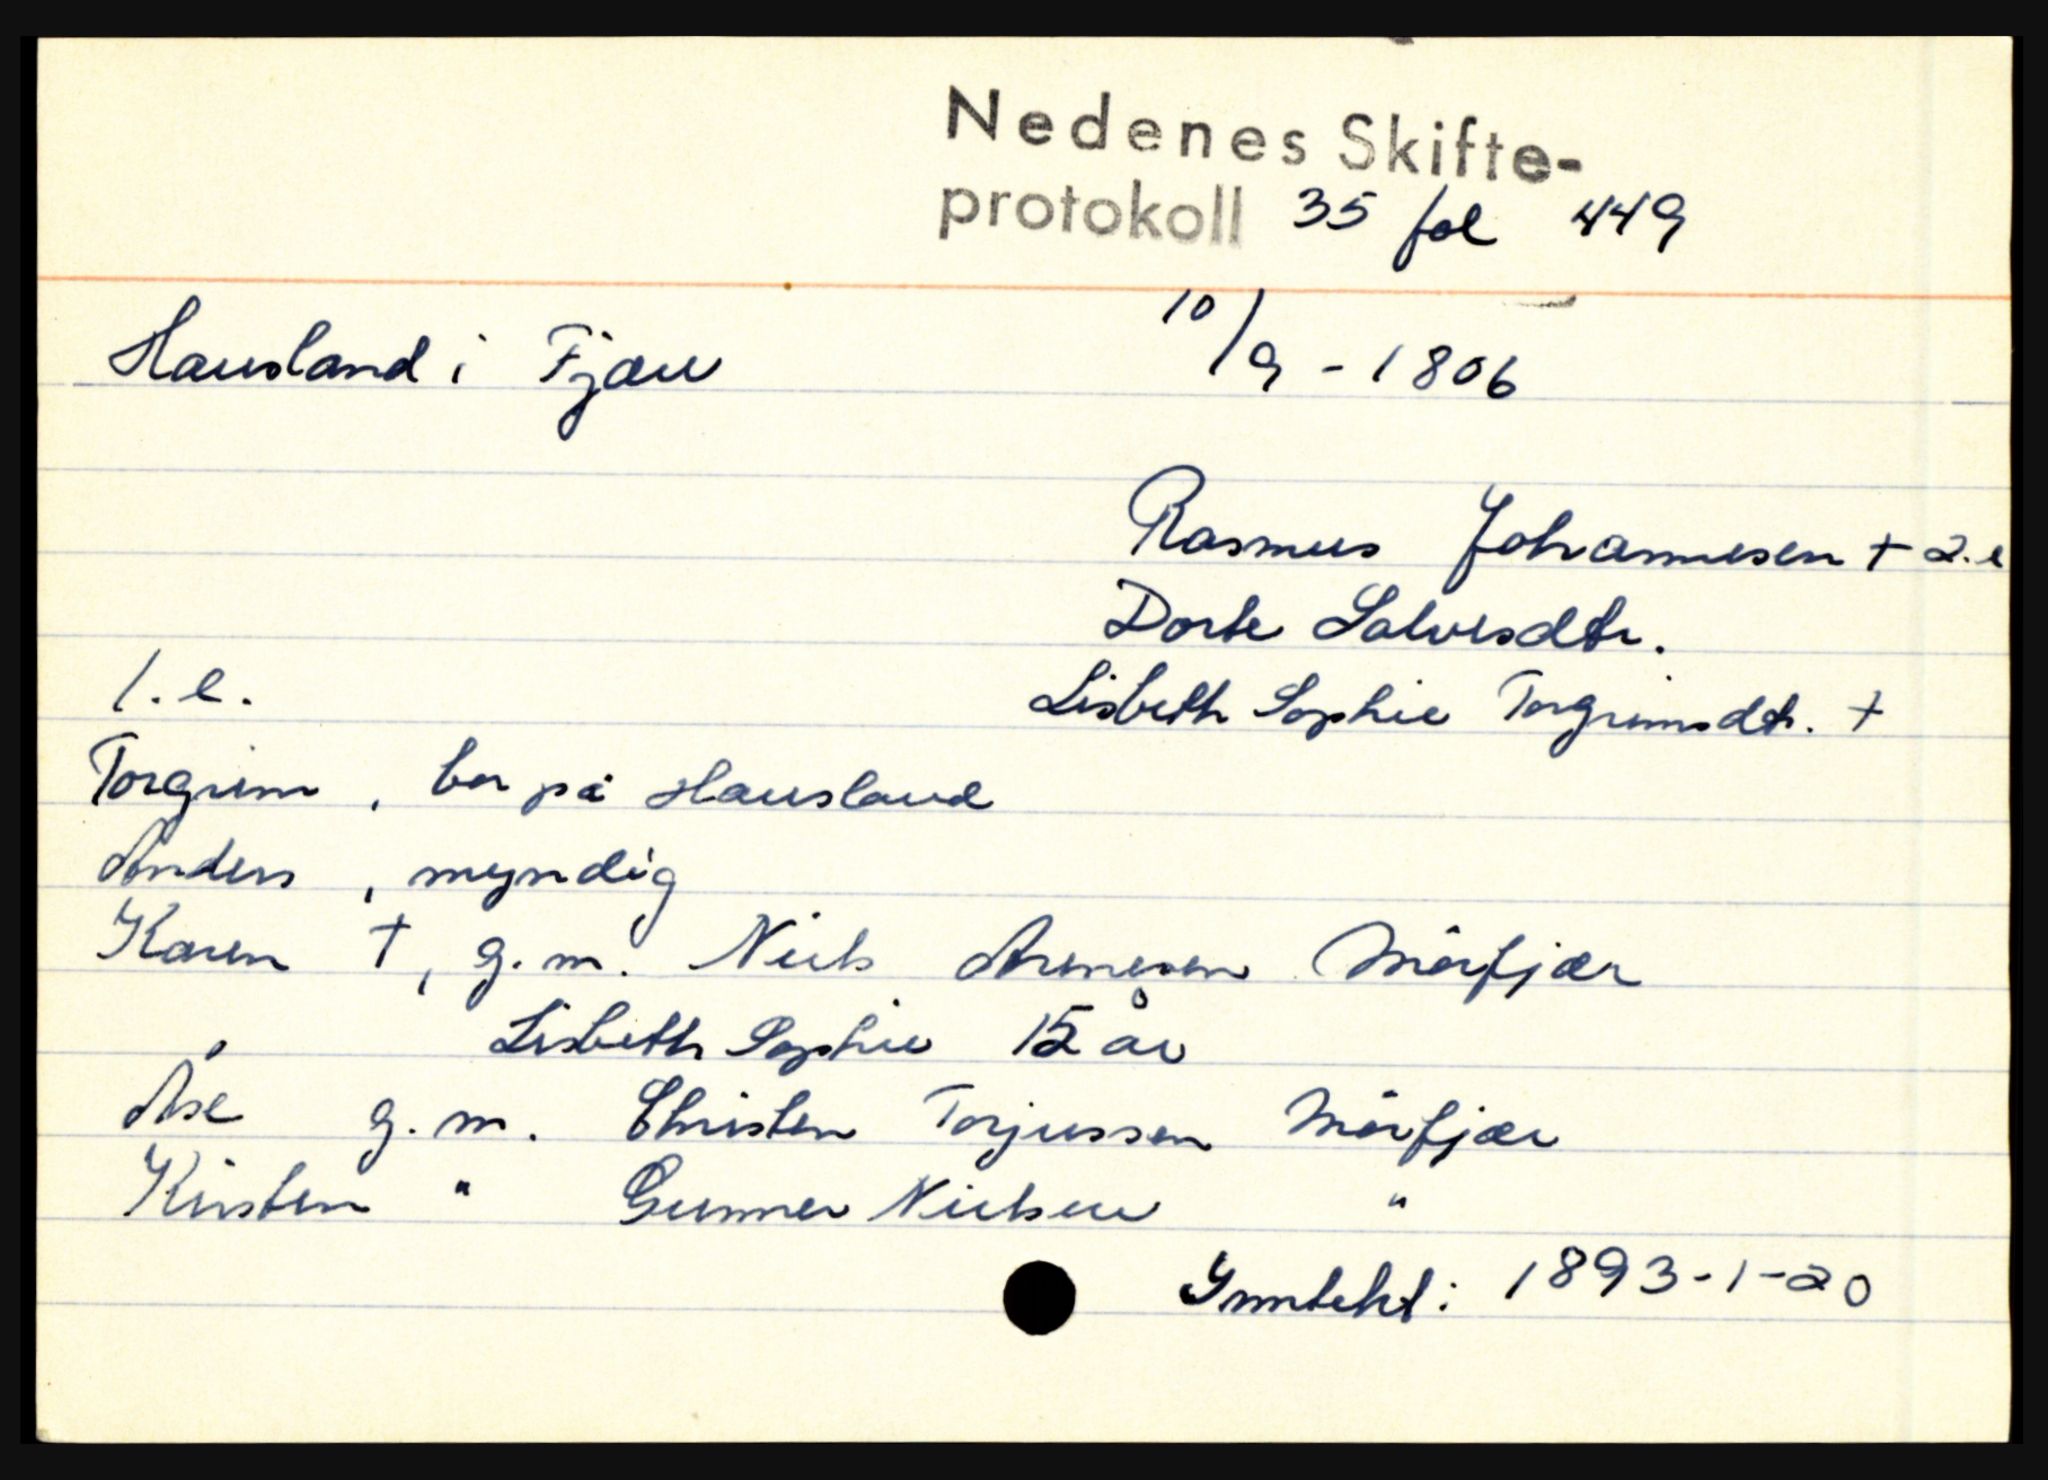 Nedenes Skifte-
protokoll 35 fol 449
Hausland i Fjære 10/9 - 1806
Rasmus Johannesen + 2. e
Dorte Salvesdtr.
1. e. Lisbeth Sophie Torgrimsdtr. +
Torgrim , bor på Hausland
Anders , myndig
Karen +, g.m. Niels Arnesen Mørfjær
Lisbeth Sophie 15 år
Åse g.m. Christen Torjussen Mørfjær
Kirsten " Gunner Nielsen "
Inntekt: 1893-1-20